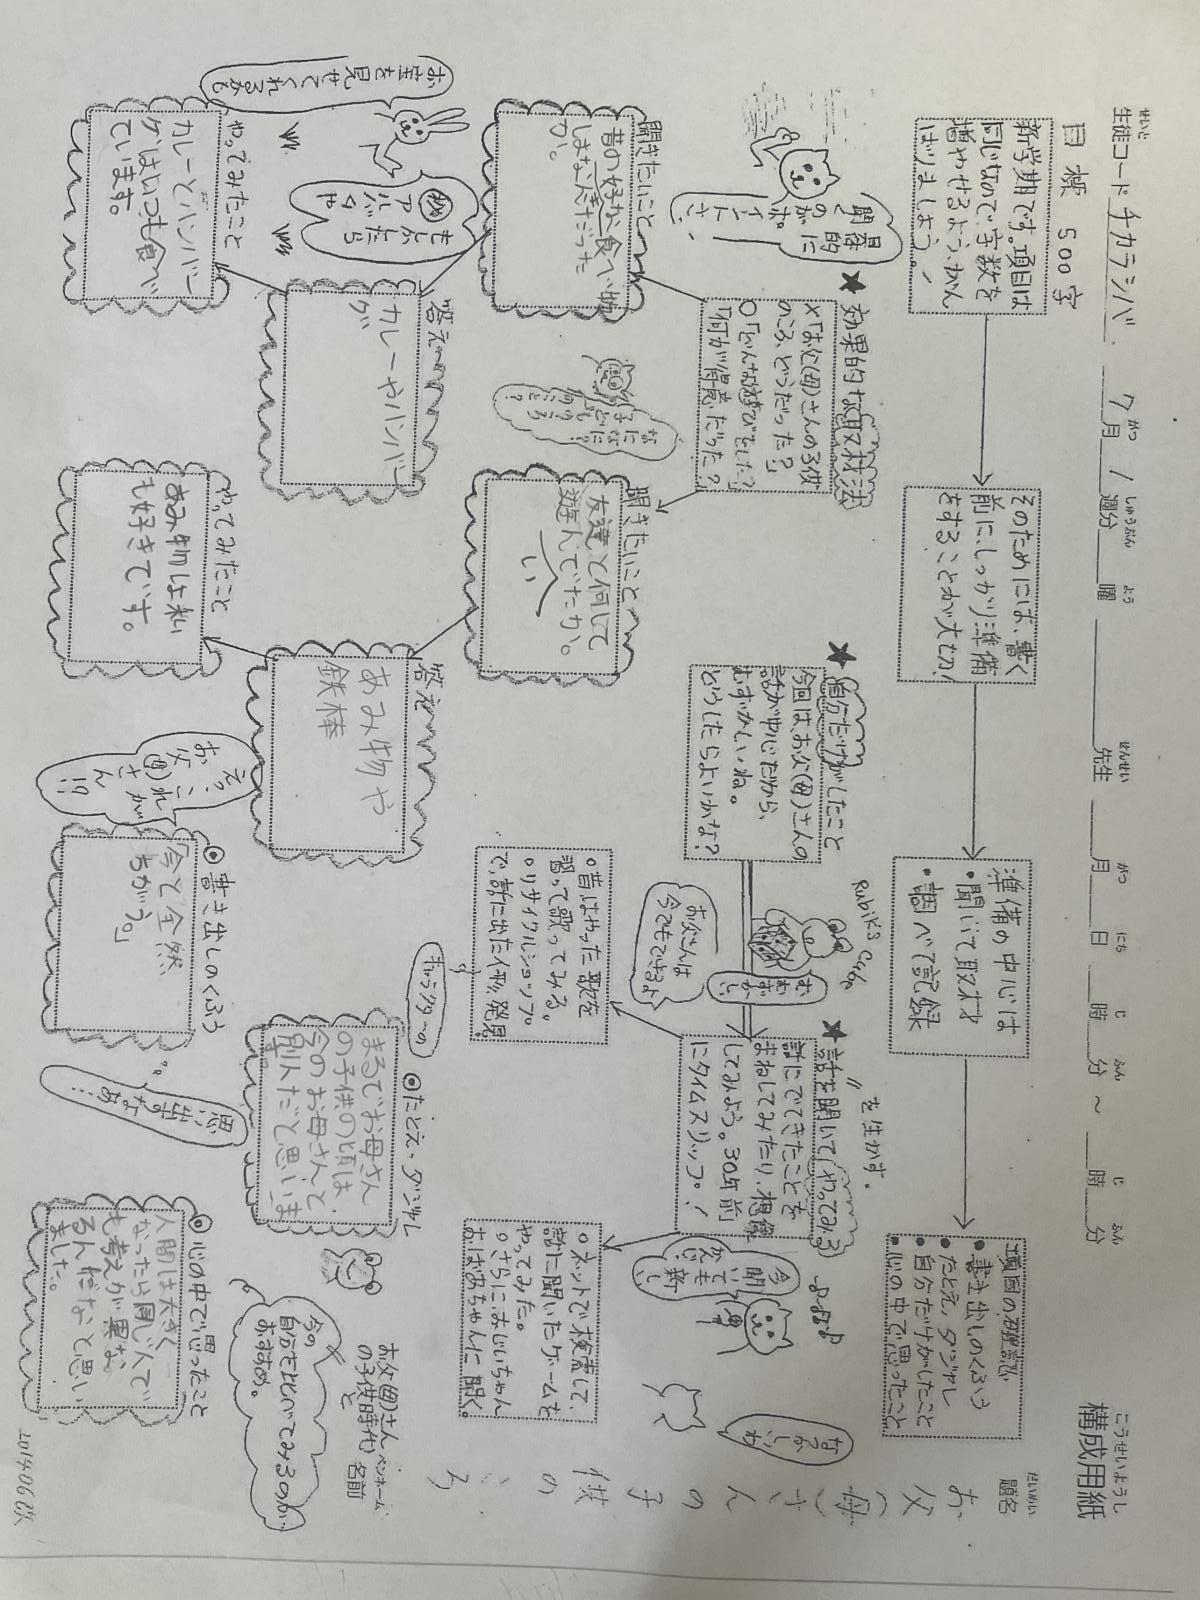 構成用紙
こうせいようし
せいと
生徒コード チカラシバ 7月 1週分 曜 先生 月 日 時 分 ~ 時 分
がつ しゅうぶん よう せんせい がつ にち じ ふん じ ふん
だいめい
題名
お父(母)さんの子供のころ
目標 500字
新学期です。項目は
同じ位ので、字数を
増やせるよう、がん
ばりましょう!
そのためには、書く
前に、しっかり準備
をすることが大切!
準備の中心は
・聞いて取材
・調べて記録
項目の確認
・書き出しのくふう
・たとえ、ダジャレ
・自分だけがしたこと
・心の中で思ったこと
★効果的な取材法
×「お父(母)さんの子供
のころ、どうだった?」
○「どんな遊びをした?」
「何が得意だった?」
具体的に
聞く
のが
ポイントさ。
★自分だけがしたこと
今回は、お父(母)さんの
話が中心だから、
むずかしいね。
どうしたらよいかな?
Rubik's Cube
むずかしい
お父さんは
今でもできるよ
★話を聞いて(やってみる)
〃を生かす。
話にでてきたことを
まねしてみたり、想像
してみよう。30年前
にタイムスリップ!
今
聞いても
新しい
なつかしいわ
聞きたいこと
昔の好かな食べ物
はなんだった
か。
聞きたいこと
友達と何して
遊んでい
たか。
○昔はやった歌を
習って歌ってみる。
○リサイクルショップ
で、話に出た人形発見
キャラクターの
○ネットで検索して、
話に聞いたゲームを
やってみた。
○さらに、おじいちゃん
おばあちゃんに聞く。
答え~
カレーやハンバー
グ
答え~
あみ物や
鉄棒
◎たとえ・ダジャレ
まるでお母さん
の子供の頃は、
今のお母さんと
別人だと思いま
す。
お父(母)さん
の子供時代
と
今の
自分を比べてみるのが
おすすめ。
ペンネーム
名前
お宝を見せてくれるかも
アルバムや
もしかしたら
やってみたこと
カレーとハンバー
グはいつも食べ
ています。
やってみたこと
あみ物は私
も好きです。
えっ、これが
お父(母)さん!?
◎書き出しのくふう
「今と全然
ちがう。」
思い出すなあ…
◎心の中で思ったこと
人間は大きく
なったら同じ人で
も考えが異な
るんだなと思い
ました。
201406改